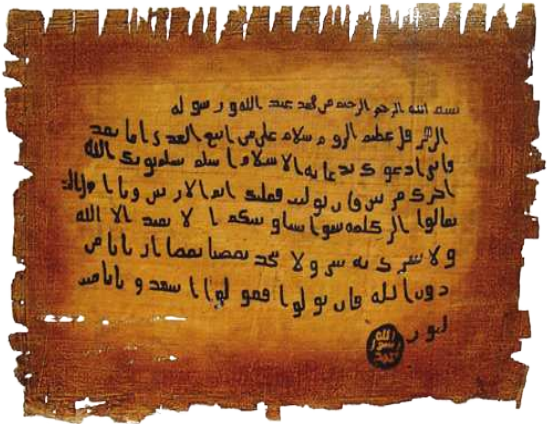 بسم الله الرحمن الرحيم من محمد عبد الله ورسوله
الى هرقل عظيم الروم سلام على من اتبع الهدى اما بعد
فانى ادعوك بدعاية الاسلام اسلم تسلم يوتك الله
اجرك مرتين فان توليت فعليك اثم الاريسيين ويا
تعالوا الى كلمه سوا بيننا وبينكم الا نعبد الا الله
ولا نشرك به شيا ولا يتخذ بعضنا بعضا اربابا من
دون الله فان تولوا فقولوا اشهدوا بانا مسلمـ
ون
الله
رسول
محمد